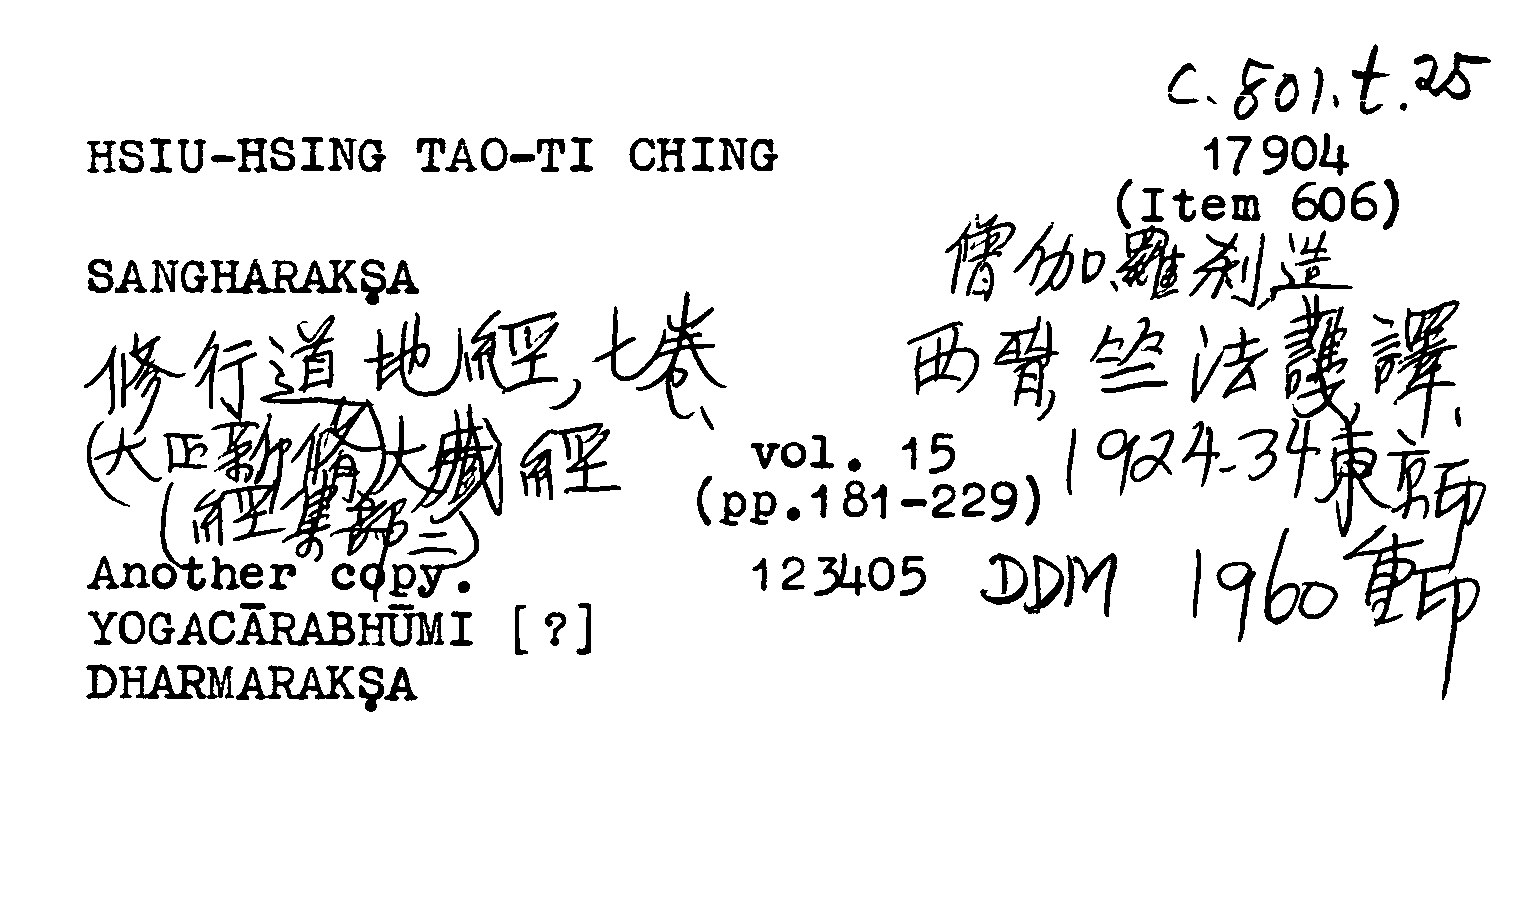 C.801.t.25
HSIU-HSING TAO-TI CHING 17904
(Item 606)
SANGHARAKṢA 僧伽羅刹造
修行道地經,七卷、 西晋,竺法護譯、
(大正新脩)大藏經 vol. 15 1924-34東京印
(經集部二) (pp.181-229)
Another copy. 123405 DDM 1960重印
YOGACĀRABHŪMI [?]
DHARMARAKṢA